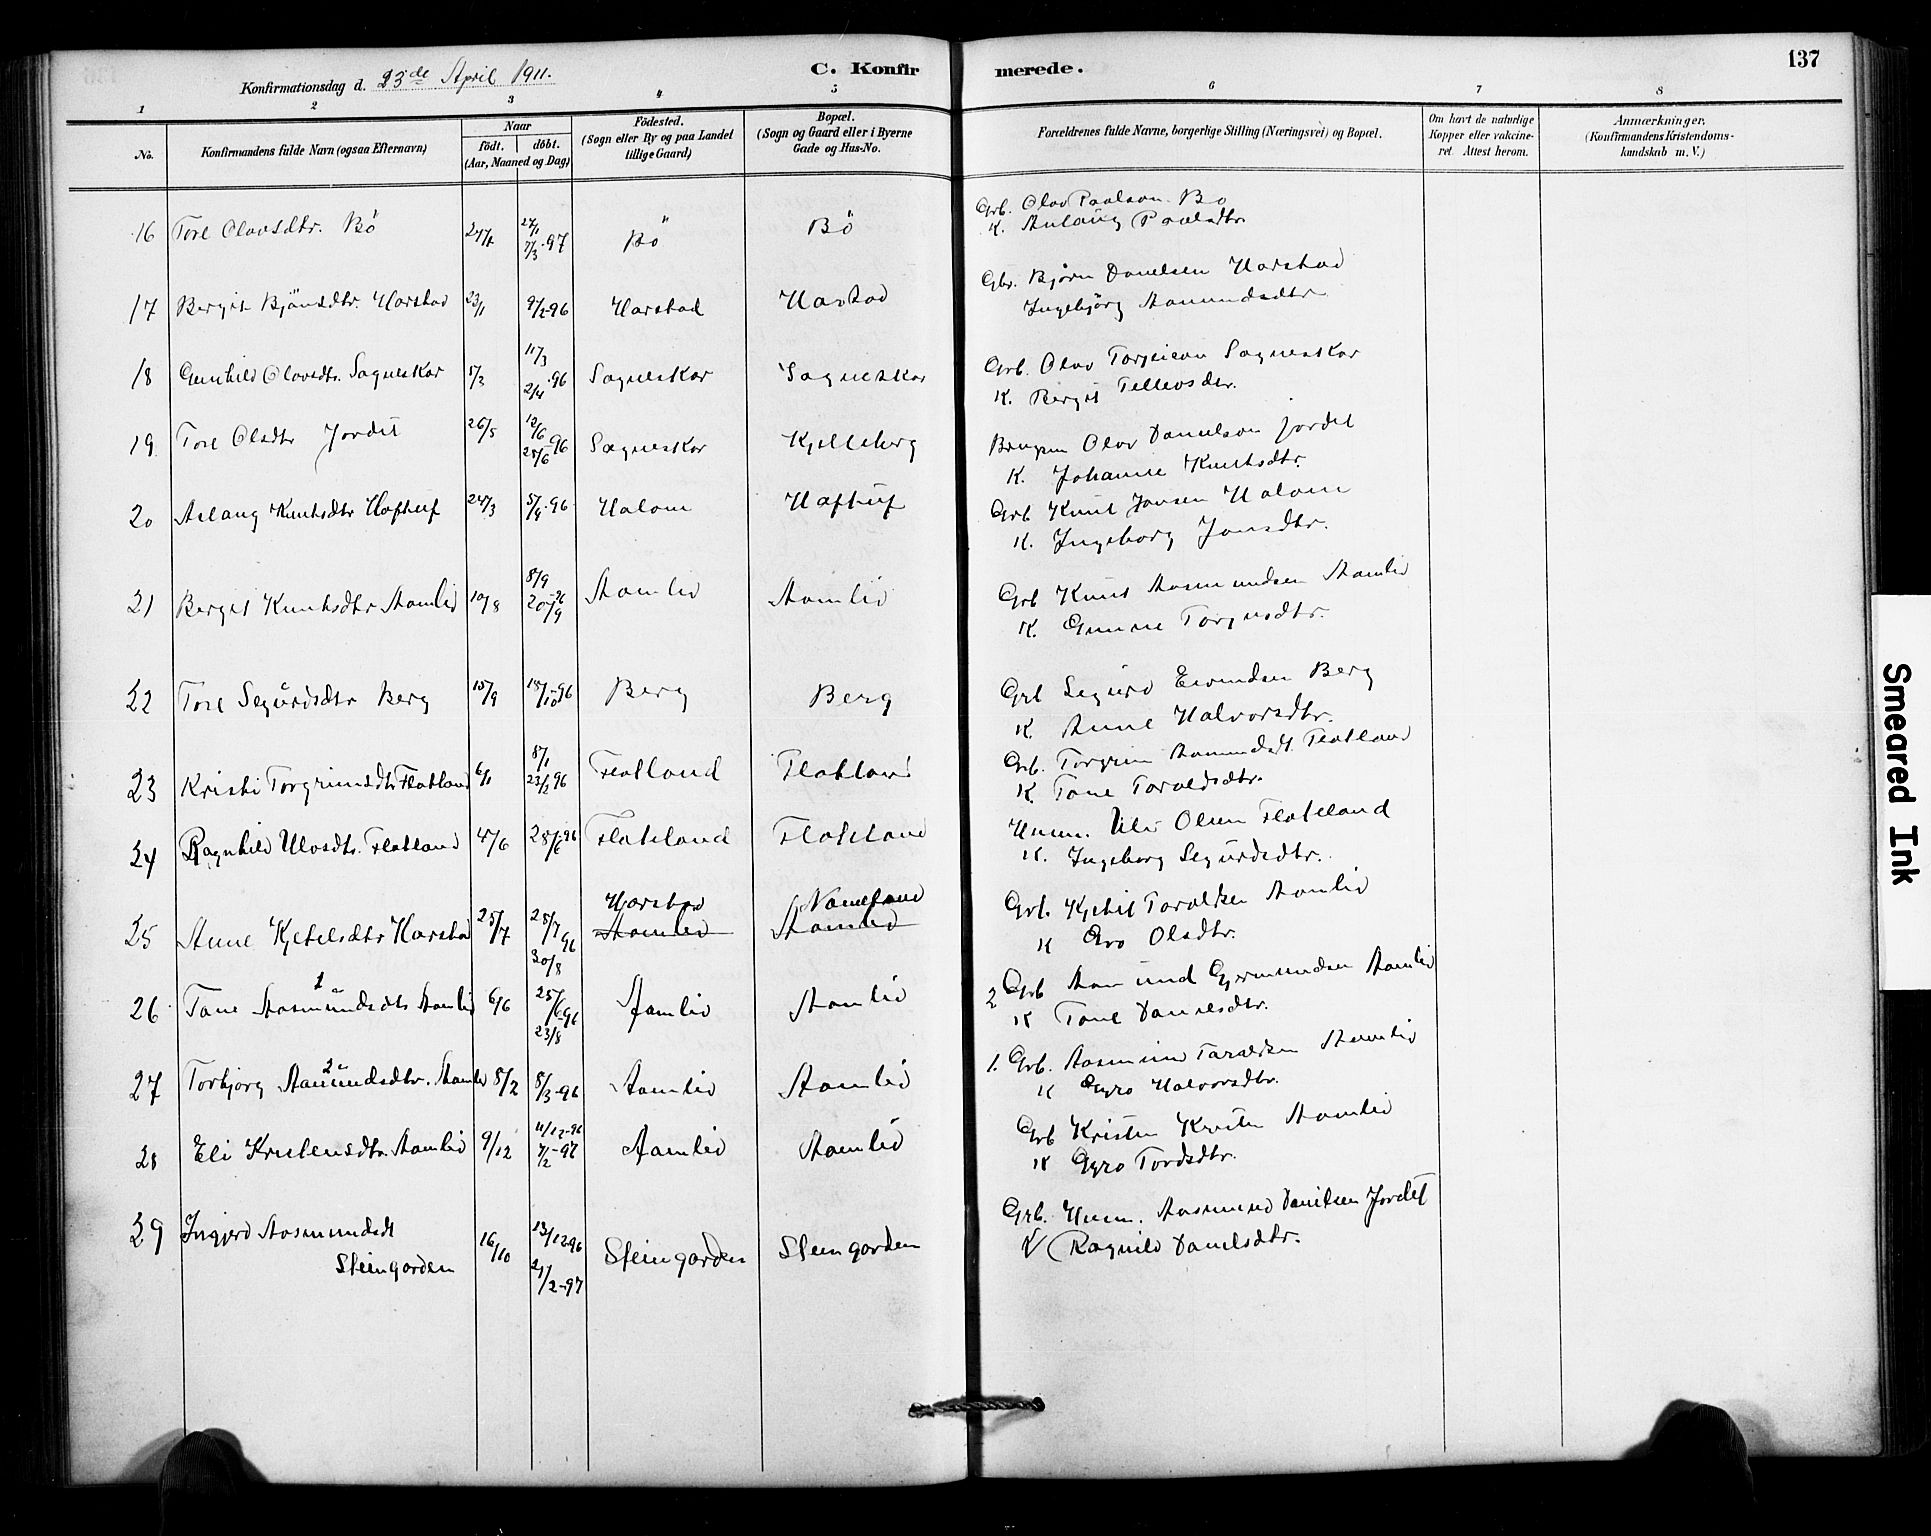 137
Konfirmationsdag d. 23de April 1911.
C. Konfirmerede.
1 2 3 4 5 6 7 8
No.
Konfirmandens fulde Navn (ogsaa Efternavn)
Naar
födt. döbt.
(Aar, Maaned og Dag)
Födested.
(Sogn eller By og paa Landet
tillige Gaard)
Bopæl.
(Sogn og Gaard eller i Byerne
Gade og Hus-No.
Forældrenes fulde Navne, borgerlige Stilling (Næringsvei) og Bopæl.
Om havt de naturlige
Kopper eller vakcine-
ret. Attest herom.
Anmærkninger.
(Konfirmandens Kristendoms-
kundskab m. V.)
16 Tore Olavsdtr. Bö 27/1 7/3-97 Bö Bö Grb. Olav Paalson Bö
K. Anlaug Paalsdtr.
17 Bergit Bjönsdtr. Harstad 23/1 9/2-96 Harstad Harstad Gbr. Björn Danielsen Harstad
Ingebjörg Aamundsdtr
18 Gunhild Olavsdtr. Sagneskar 1/3 11/3 2/4-96 Sagneskar Sagneskar Grb. Olav Torjeison Sagneskar
K. Bergit Tellevsdtr.
19 Tore Olsdtr Jordet 26/5 12/6 28/6-96 Sagneskar Kjelleberg Olav Danielson Jordet
K. Johanne Knutsdtr.
20 Aslaug Knutsdtr Haftuf 24/3 5/4-96 Halom Haftuf Grb Knut Jonsen Halom
K. Ingeborg Jonsdtr.
21 Bergit Knutsdtr Aamlid 10/8 8/9 20/9-96 Aamlid Aamlid Grb Knut Aasmundsen Aamlid
K. Gunne Torjusdtr.
22 Tore Sigurdsdtr Berg 15/9 18/10-96 Berg Berg Grb Sigurd Eivindsen Berg
K Anne Halvorsdtr.
23 Kristi Torgrimsdtr Flatland 6/1 8/1 23/2-96 Flatland Flatland Grb. Torgrim Aamundst Flatland
K. Tone Taraldsdtr.
24 Ragnhild Ulvsdtr. Flatland 4/6 28/6-96 Flateland Flateland Husm. Ulv Olsen Flateland
K. Ingeborg Sigurdsdtr.
25 Anne Kjetelsdtr Harstad 25/7 28/7 96 30/8 Harstad Aamlid Nomeland Aamlid Grb. Kjetil Taraldsen Aamlid
K Gro Olsdtr.
26 Tone Aasmundsdtr Aamlid 1 6/6 25/6-96 23/8 Aamlid Aamlid 2 Grb Aamund Gjermundsen Aamlid
K Tone Danielsdtr.
27 Torbjorg Aamundsdtr. Aamlid 2 8/2 8/3-96 Aamlid Aamlid 1. Grb. Aasmund Taraldsen Aamlid
K Gyro Halvorsdtr.
28 Eli Kristensdtr. Aamlid 9/12 11/12-96 7/2-97 Aamlid Aamlid Grb Kristen Kristen Aamlid
K Gyro Tordsdtr.
29 Ingjerd Aasmundsdt
Steingarden 16/10 13/12-96 21/2-97 Steingarden Steingarden Grb. Husm. Aasmund Danielsen Jordet
K Ragnild Danielsdtr.
Smeared Ink